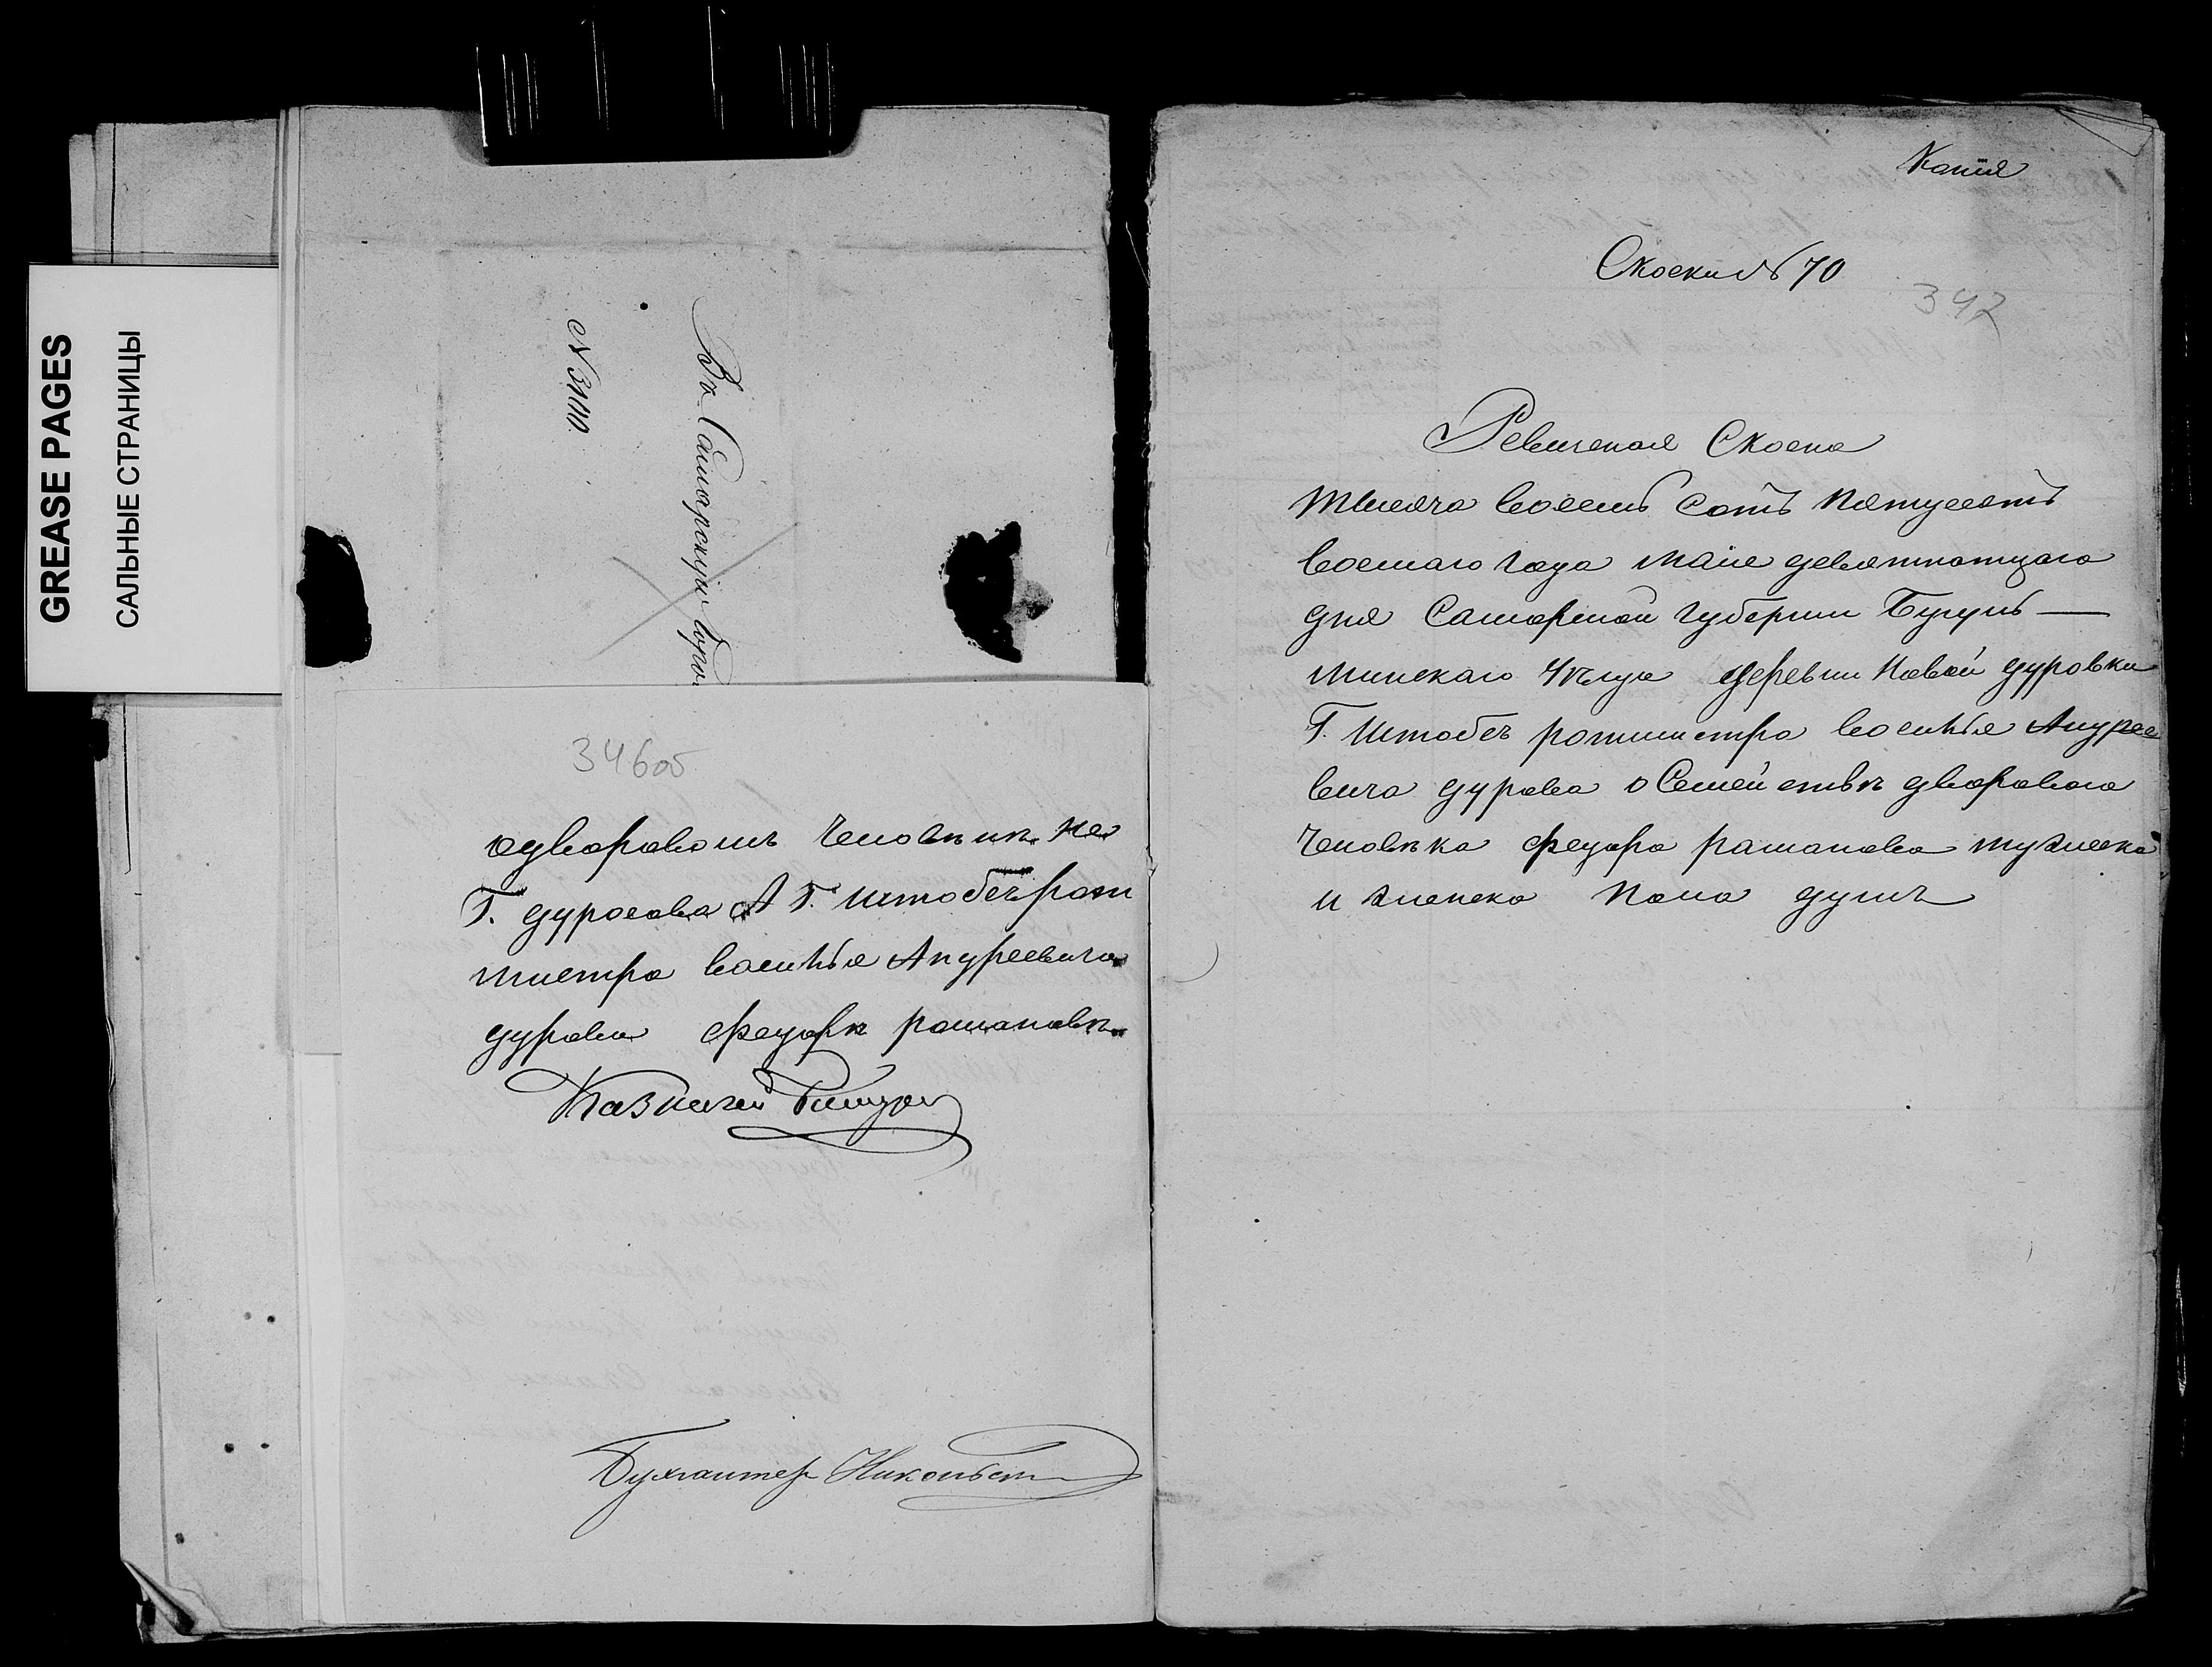 GREASE PAGES
САЛЬНЫЕ СТРАНИЦЫ
Въ Самарскую
№ 3110
346об
одворовомъ человѣкѣ не
Г. дурасова А Г. штабсъ рот
мистра василья Андреевича
дурова Федорѣ рамановѣ
Казначей
Бухгалтер Никольск
Копія
Скаски № 70
342
Ревиская Скаска
тысяча восемь сотъ пятдесятъ
восмаго года мая девятнатцаго
дня Самарской губернии Бугуль—
минскаго уѣзда деревни Новой дуровки
Г. штабсъ ротмистра василья Андрее
вича дурова о Семействѣ двороваго
человѣка федора раманова мужеска
и женска пола душъ